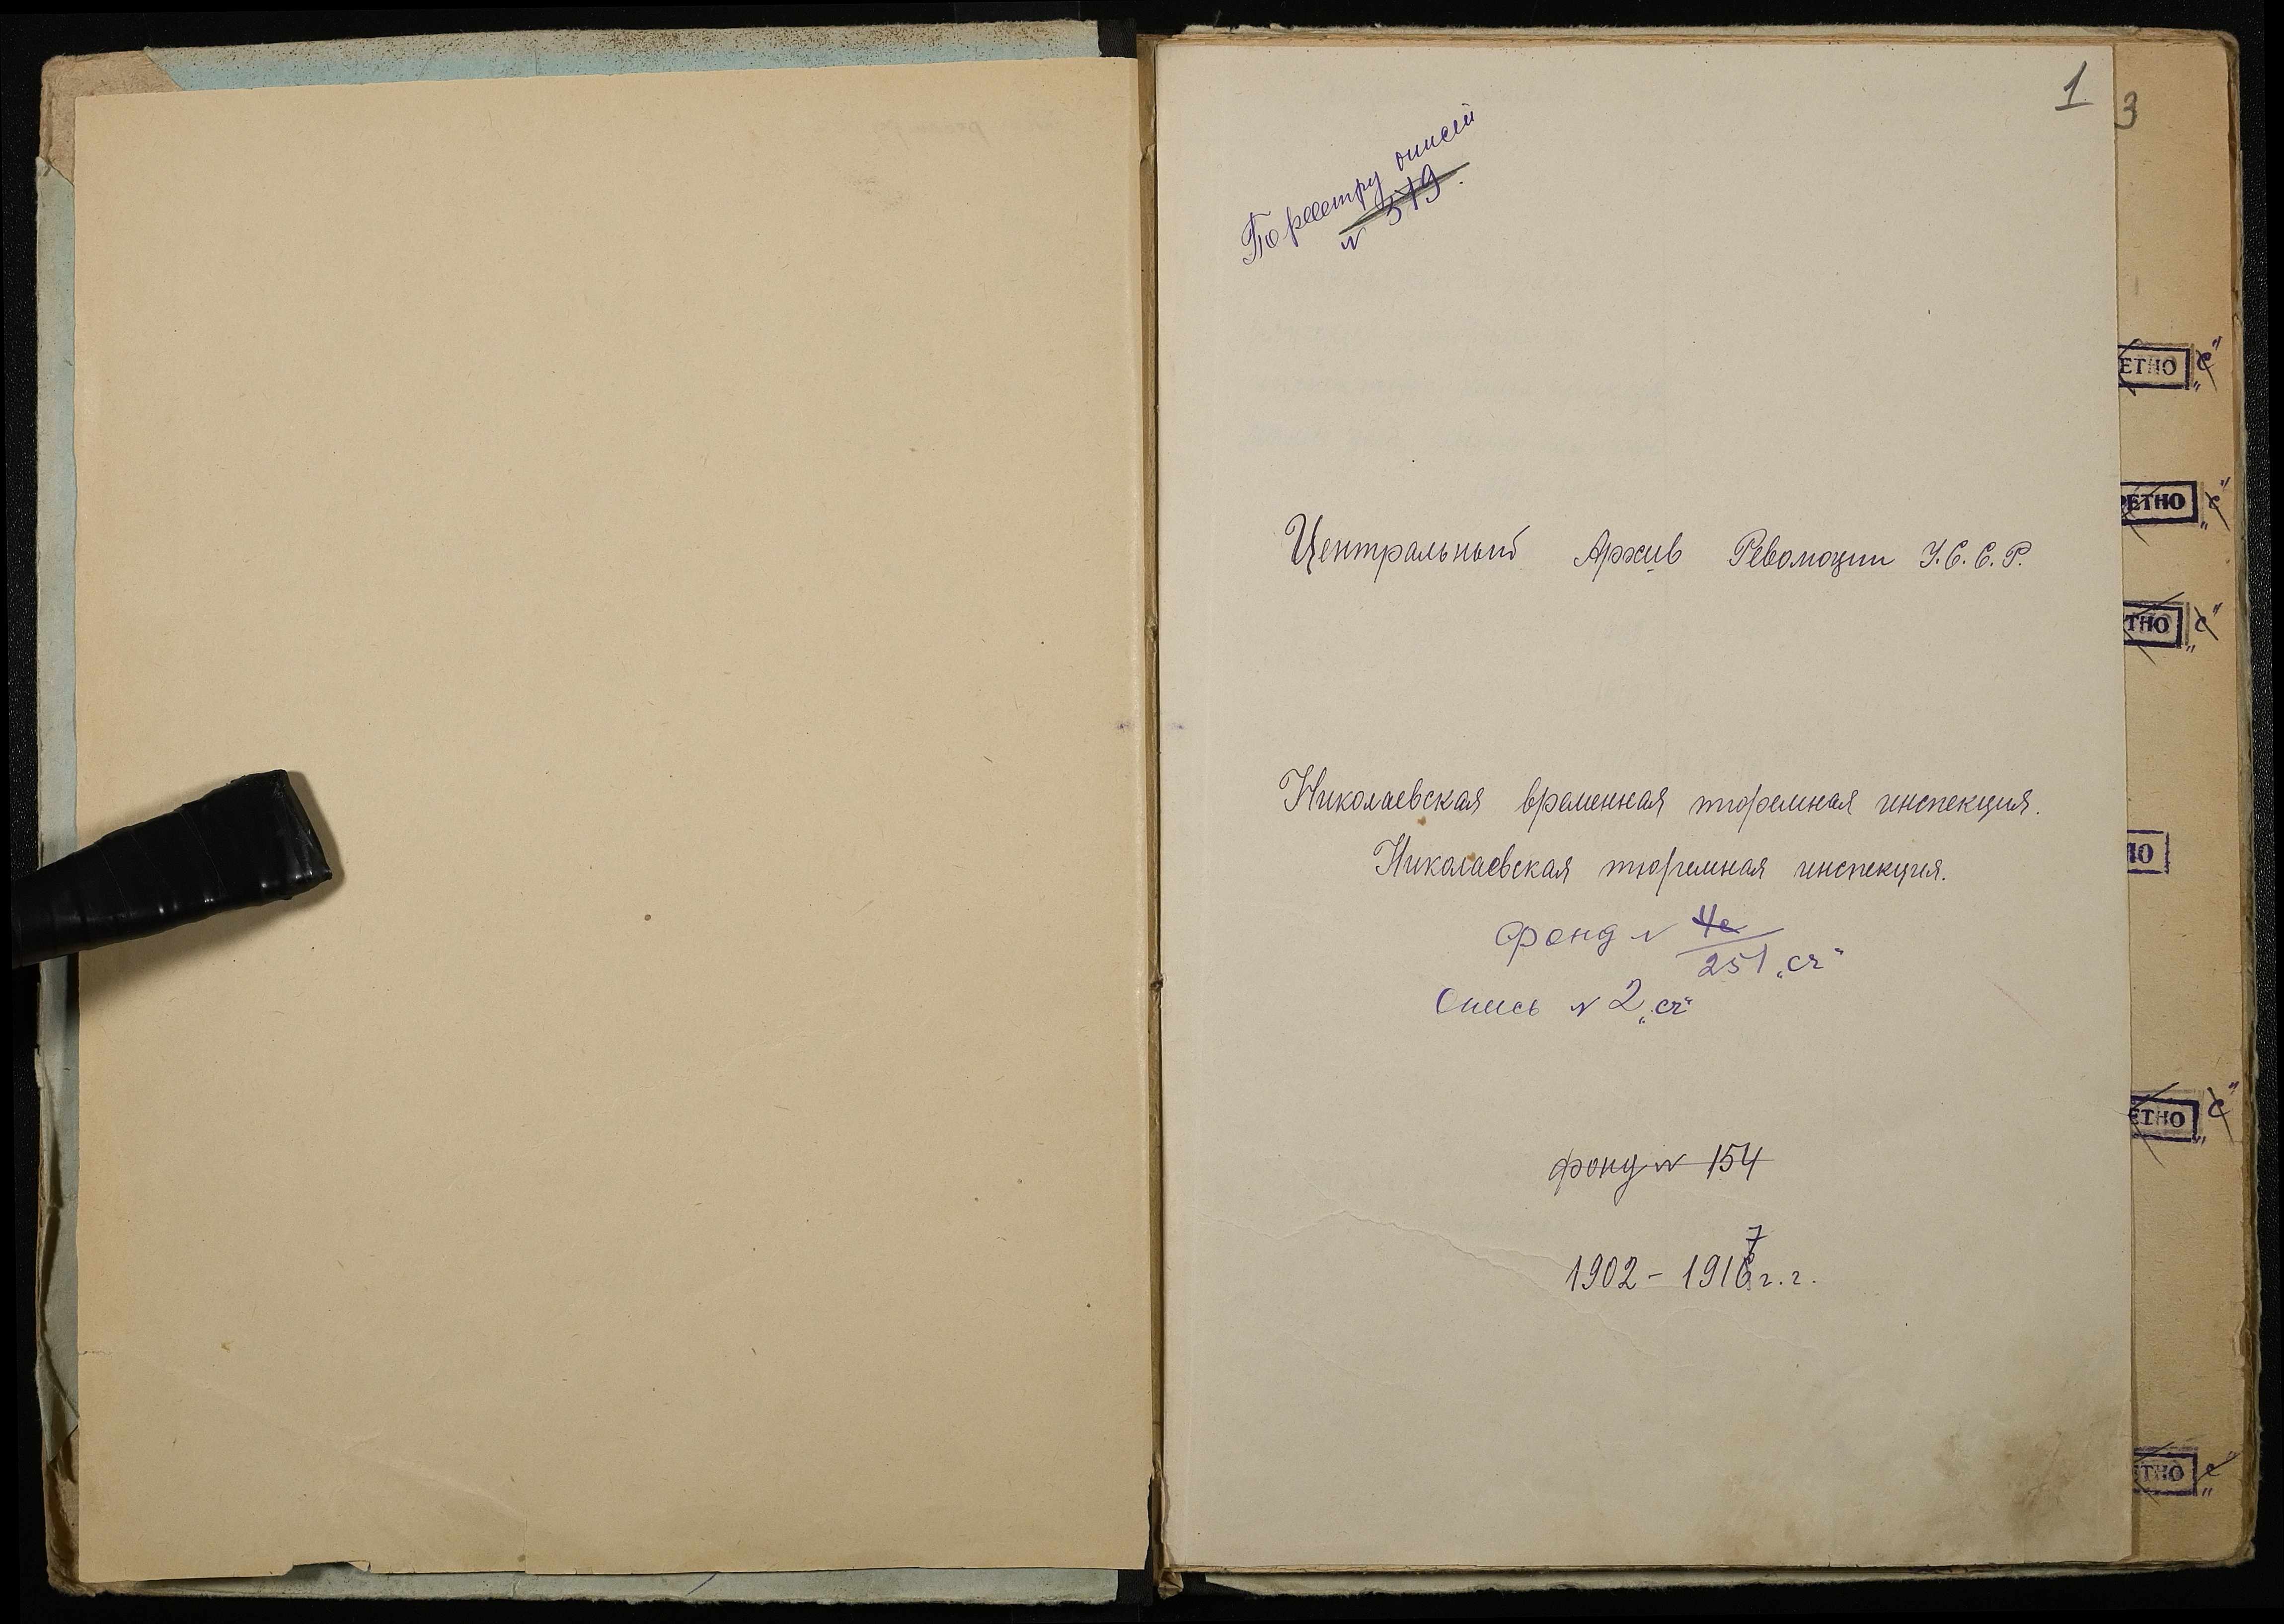 1
3
По реестру описей
№ 519.
Центральный Архив Революции У.С.С.Р.
Николаевская временная тюремная инспекция.
Николаевская тюремная инспекция.
фонд №
251 „сч"
Опись № 2 „сч"
фонд № 154
1902 – 1917 г.г.
ЕТНО „с"
РЕТНО „с"
ТНО „с"
НО
ЕТНО „с"
ТНО „с"